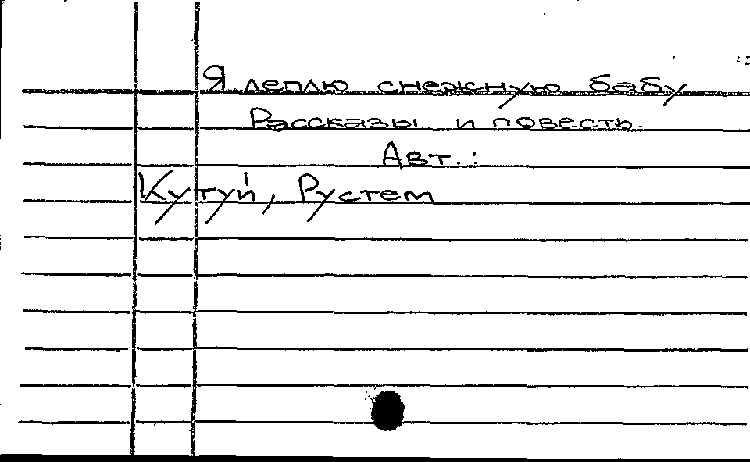 Я леплю снежную бабу
Рассказы и повесть.
Авт.:
Кутуй, Рустем